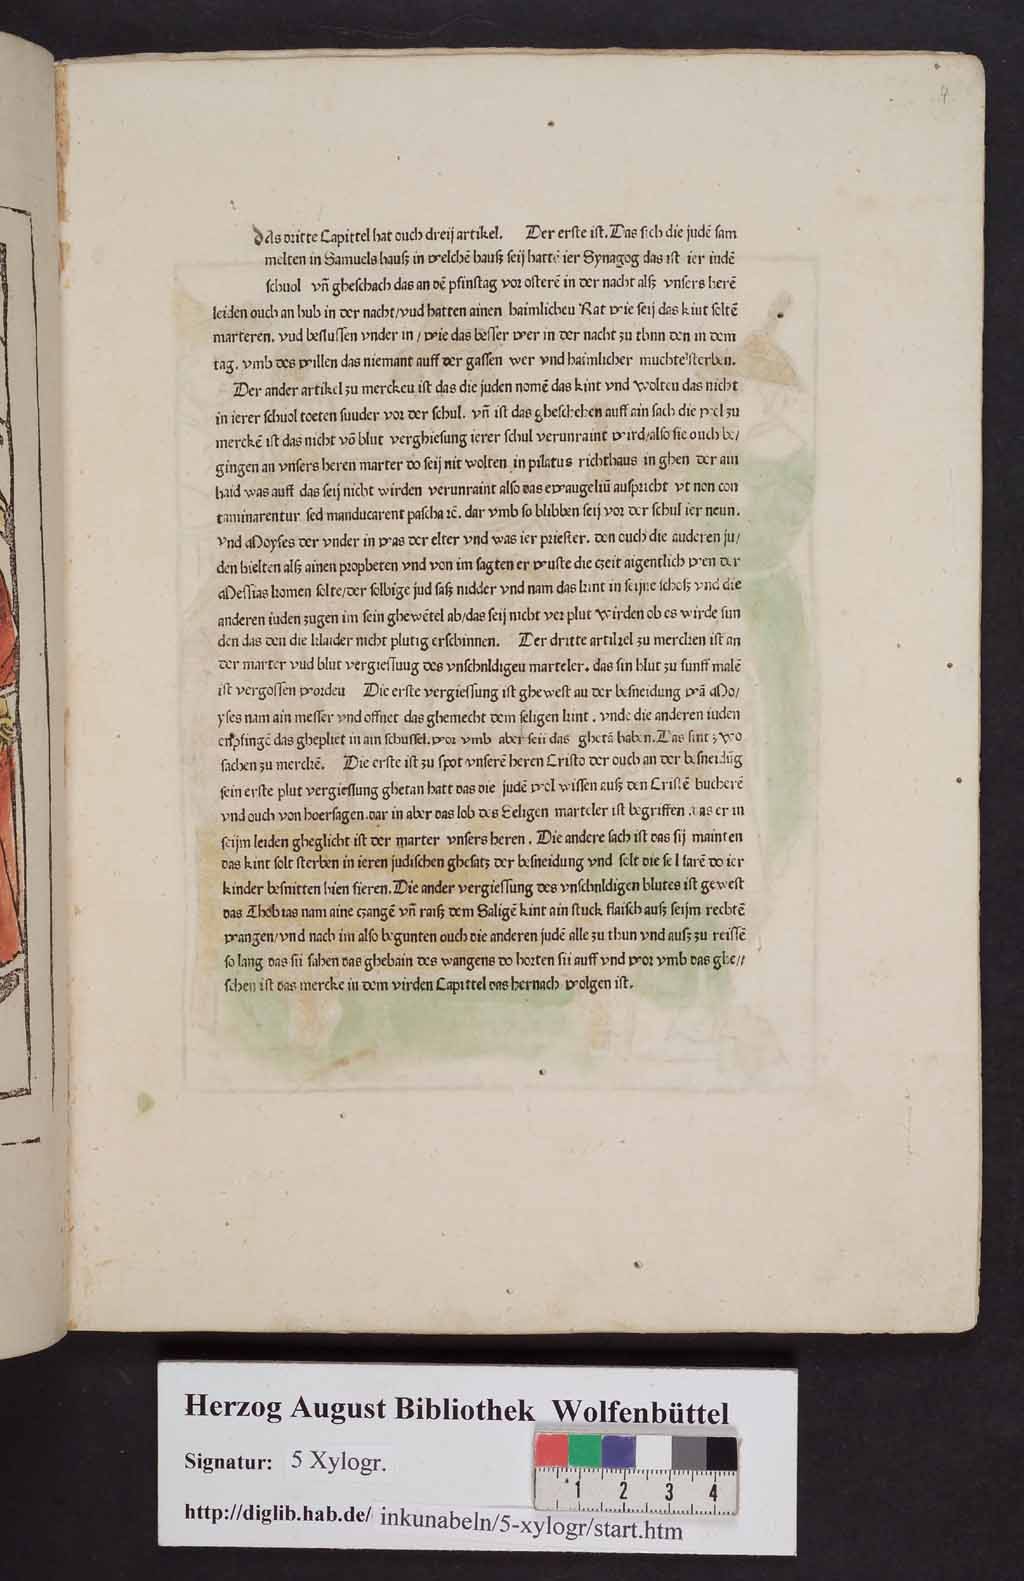 4
dAs dritte Capittel hat ouch dreij artikel. Der erste ist. Das sich die judē sam
melten in Samuels hauß in welchē hauß seij hattē ier Synagog das ist ier iudē
schuol vn̄ gheschach das an dē pfinstag vor osterē in der nacht alß vnsers herē
leiden ouch an hub in der nacht/vud hatten ainen haimlicheu Rat wie seij das kiut soltē
marteren. vud beslussen vnder in / wie das besser wer in der nacht zu thnn den in dem
tag. vmb des willen das niemant auff der gassen wer vnd haimlicher muchte sterben.
Der ander artikel zu merckeu ist das die juden nomē das kint vnd wolteu das nicht
in ierer schuol toeten suuder vor der schul. vn̄ ist das gheschehen auff ain sach die wel zu
merckē ist das nicht vō blut verghiesung ierer schul verunraint wird/also sie ouch be/
gingen an vnsers heren marter do seij nit wolten in pilatus richthaus in ghen der ain
haid was auff das seij nicht wirden verunraint also das ewaugeliū auspricht vt non con
taminarentur sed manducarent pascha ꝛē. dar vmb so blibben seij vor der schul ier neun.
vnd Moyses der vnder in was der elter vnd was ier priester. den ouch die auderen ju/
den hielten alß ainen propheten vnd von im sagten er wuste die czeit aigentlich wen der
Messias komen solte/der selbige jud saß nidder vnd nam das kint in seijne schoß vnd die
anderen iuden zugen im sein ghewētel ab/das seij nicht ver plut wirden ob es wirde sun
den das den die klaider nicht plutig erschinnen. Der dritte artikel zu mercken ist an
der marter vud blut vergiessuug des vnschnldigeu marteler. das sin blut zu funff malē
ist vergossen wordeu Die erste vergiessung ist ghewest au der besneidung wā Mo/
yses nam ain messer vnd offnet das ghemecht dem seligen kint . vnde die anderen iuden
enpfingē das gheplet in ain schussel. wor vmb aber seii das ghetā haben. Das sint zwo
sachen zu merckē. Die erste ist zu spot vnserē heren Cristo der ouch an der besneidūg
sein erste plut vergiessung ghetan hatt das die judē wel wissen auß den Cristē bucherē
vnd ouch von hoersagen. dar in aber das lob des Seligen marteler ist begriffen . das er in
seijm leiden gheglicht ist der marter vnsers heren . Die andere sach ist das sij mainten
das kint solt sterben in ieren judischen ghesatz der besneidung vnd solt die sel farē do ier
kinder besnitten hien fieren. Die ander vergiessung des vnschnldigen blutes ist gewest
das Thobias nam aine czangē vn̄ raiß dem Saligē kint ain stuck flaisch auß seijm rechtē
wangen/vnd nach im also begunten ouch die anderen judē alle zu thun vnd auß zu reissē
so lang das sii sahen das ghebain des wangens do horten sii auff vnd wor vmb das ghe//
schen ist das mercke in dem virden Capittel das hernach wolgen ist.
Herzog August Bibliothek Wolfenbüttel
Signatur: 5 Xylogr.
1 2 3 4
http://diglib.hab.de/ inkunabeln/5-xylogr/start.htm